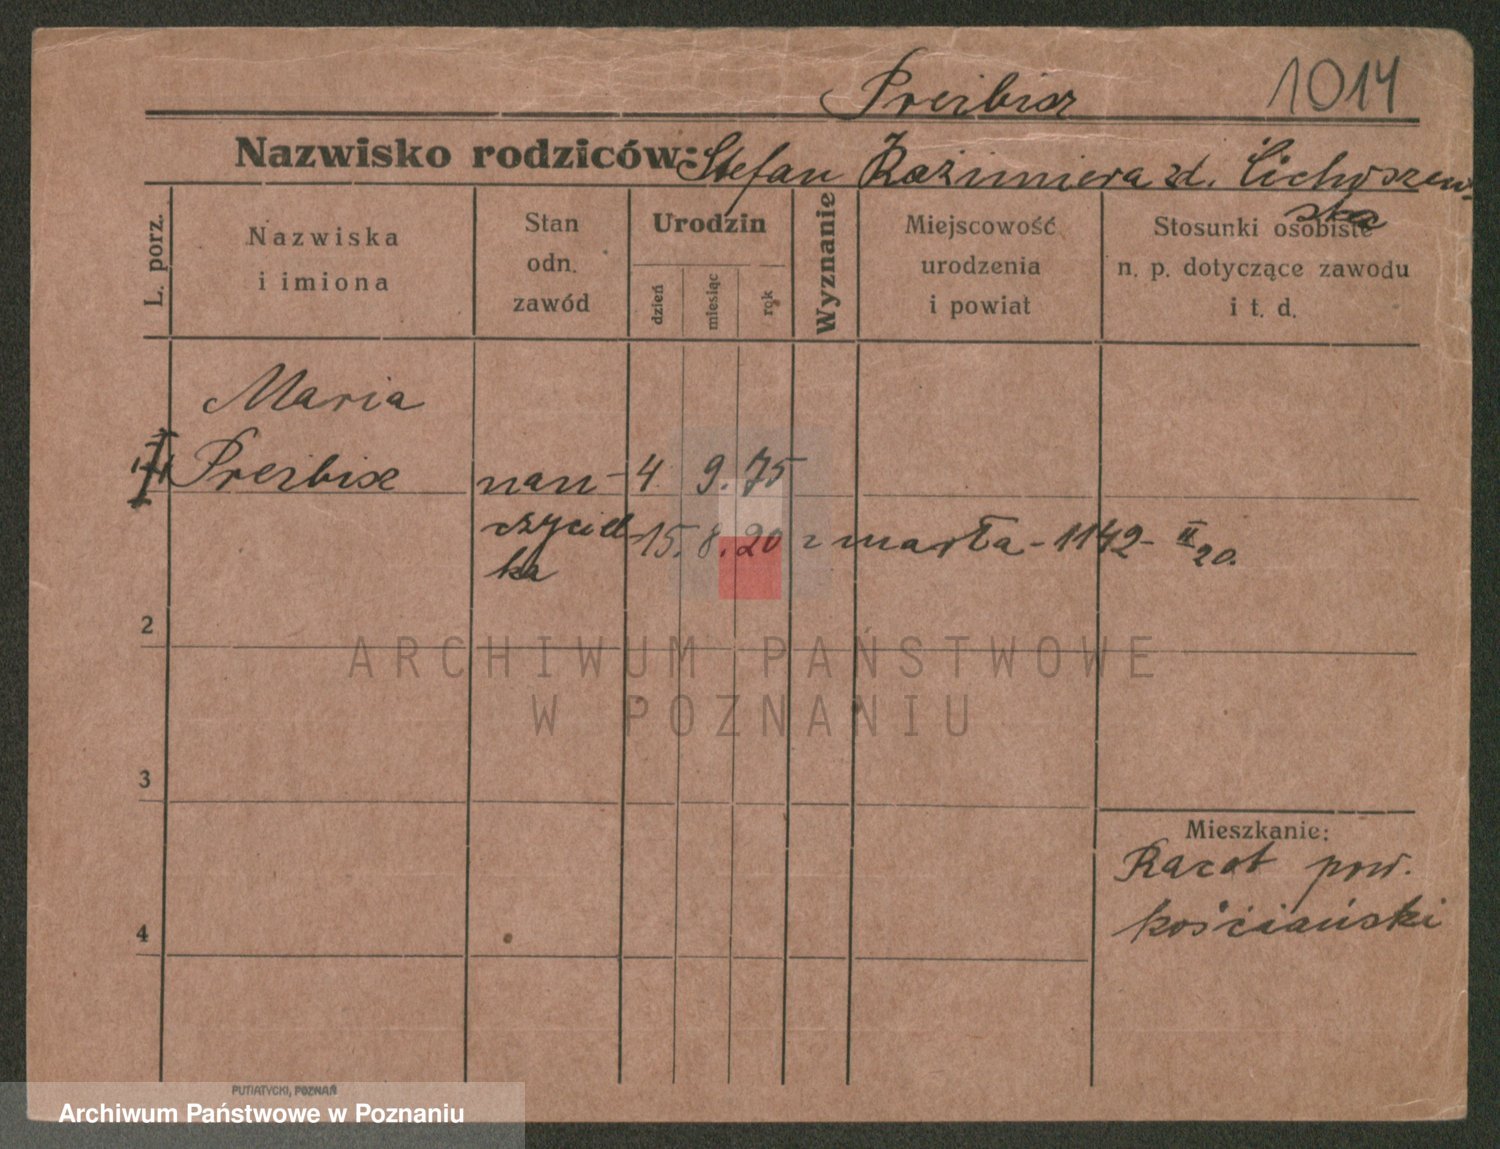 Preibisz
1014
Nazwisko rodziców: Stefan Kaźimiera zd. Cichoszew-
ska
L. porz.
Nazwiska
i imiona
Stan
odn.
zawód
Urodzin
dzień
miesiąc
rok
Wyznanie
Miejscowość
urodzenia
i powiat
Stosunki osobiste
n. p. dotyczące zawodu
i t. d.
Maria
Preibisz nau- 4 9. 75
czyciel- 15. 8. 20 zmarła - 1142 - II 20.
ka
2
ARCHIWUM PAŃSTWOWE
W POZNANIU
3
Mieszkanie:
Racot pow.
kościański
4
PUTIATYCKI, POZNAŃ
Archiwum Państwowe w Poznaniu